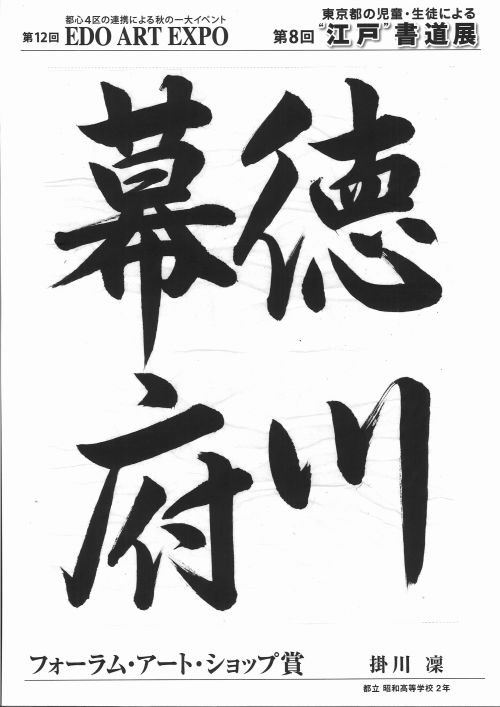 都心4区の連携による秋の一大イベント
第12回 EDO ART EXPO
東京都の児童・生徒による
第8回 "江戸"書道展
徳川
幕府
フォーラム・アート・ショップ賞
掛川 凜
都立 昭和高等学校 2年